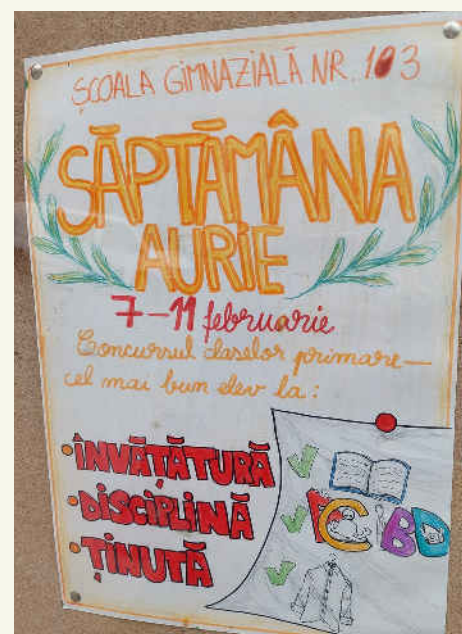 ȘCOALA GIMNAZIALĂ NR. 103
SĂPTĂMÂNA
AURIE
7-11 februarie
Concursul claselor primare—
cel mai bun elev la:
•ÎNVĂȚĂTURĂ
•DISCIPLINĂ
•ȚINUTĂ